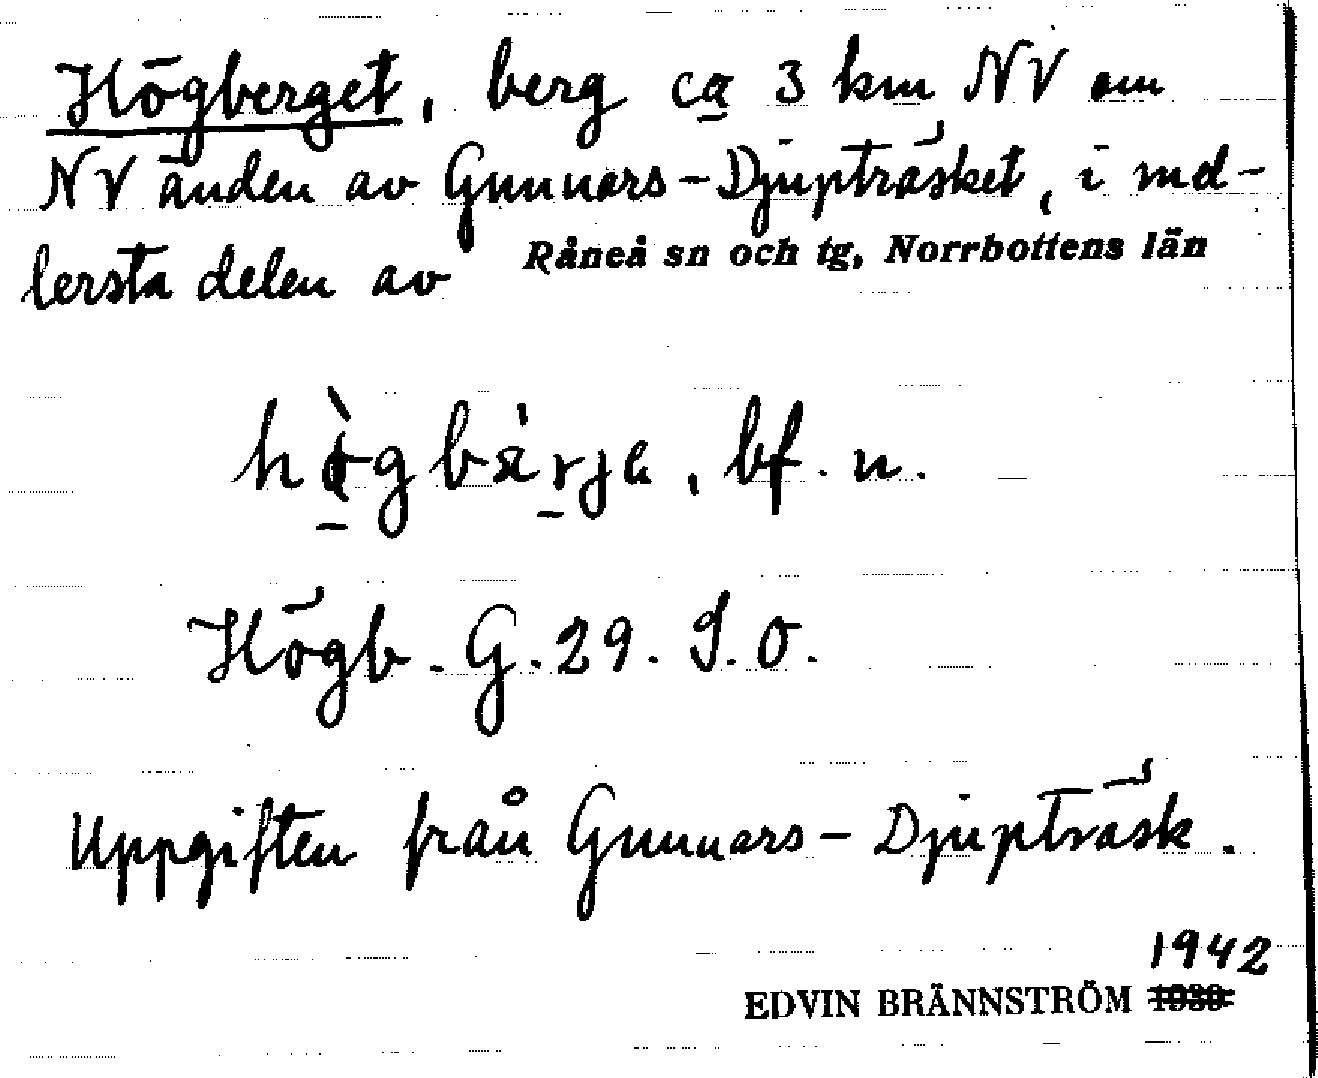 Högberget, berg ca 3 km NV om
NV änden av Gunnars-Djupträsket, i md-
lersta delen av Råneå sn och tg, Norrbottens län
bf. n.
Högb. G. 29. S. O.
Uppgiften från Gunnars-Djupträsk.
1942
EDVIN BRÄNNSTRÖM 1939